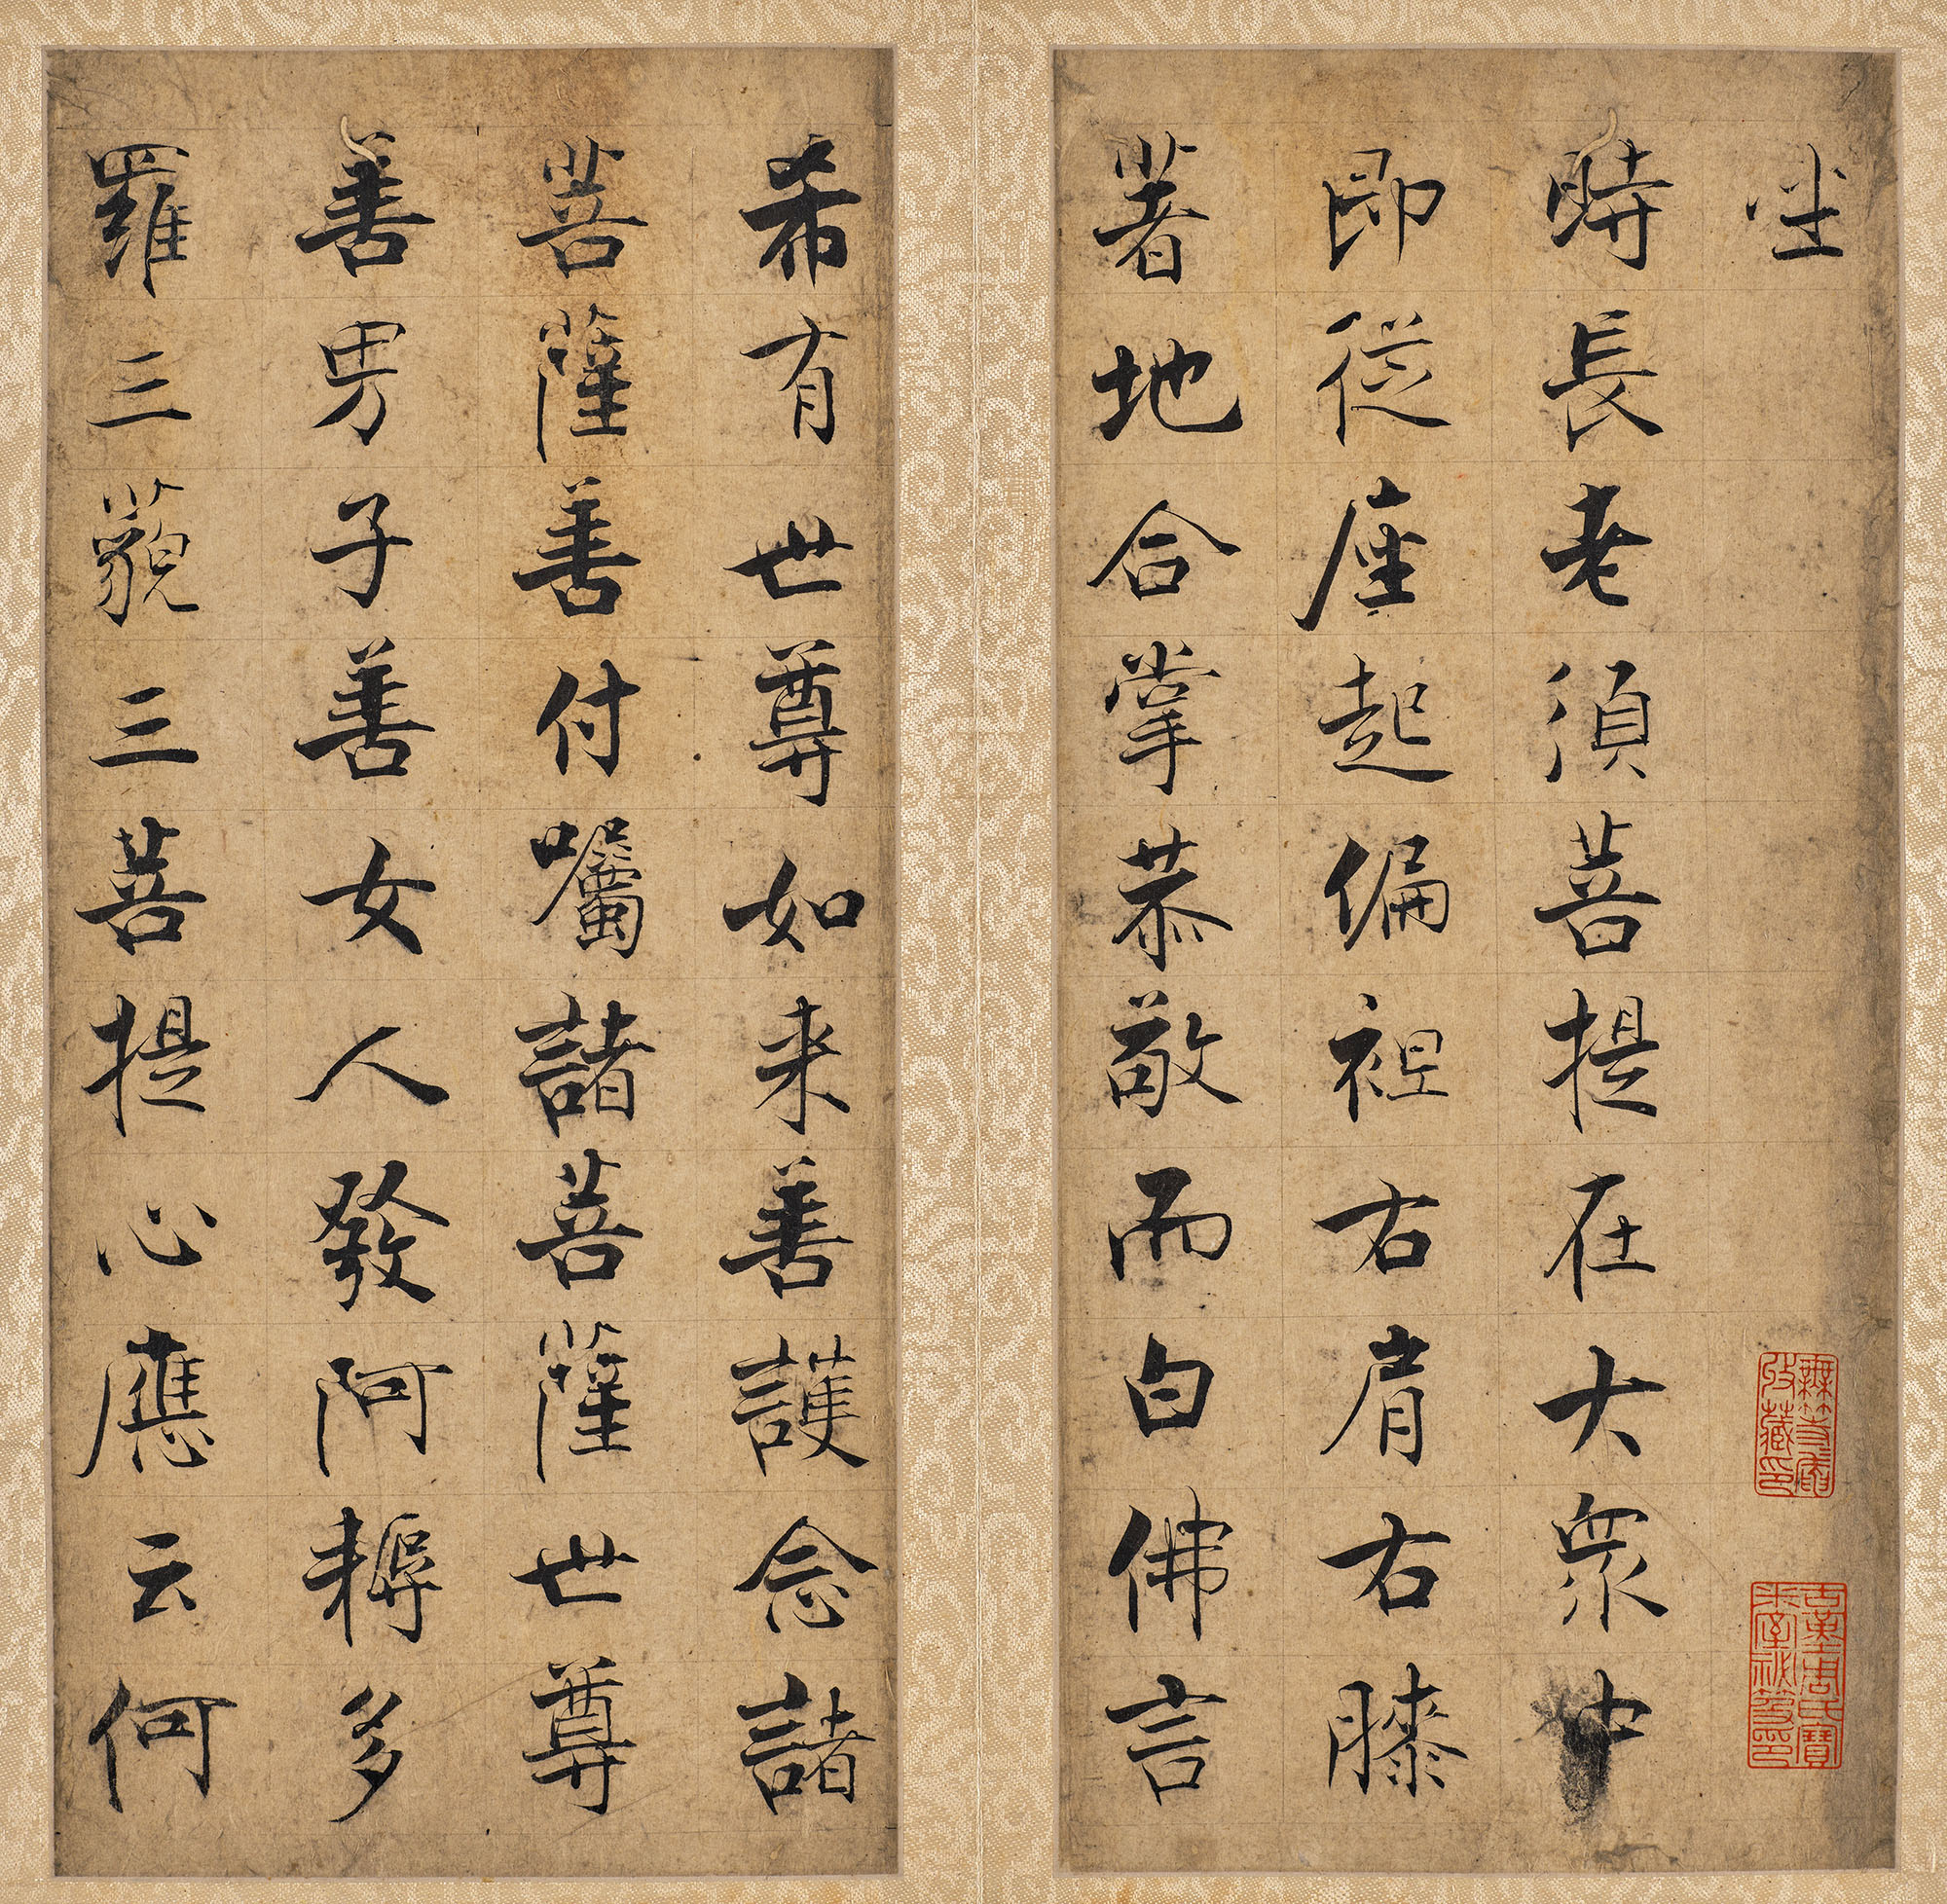 坐
時長老須菩提在大衆中
即從座起偏袒右肩右膝
著地合掌恭敬而白佛言
希有世尊如来善護念諸
菩薩善付囑諸菩薩世尊
善男子善女人發阿耨多
羅三藐三菩提心應云何
無等等盦收藏印